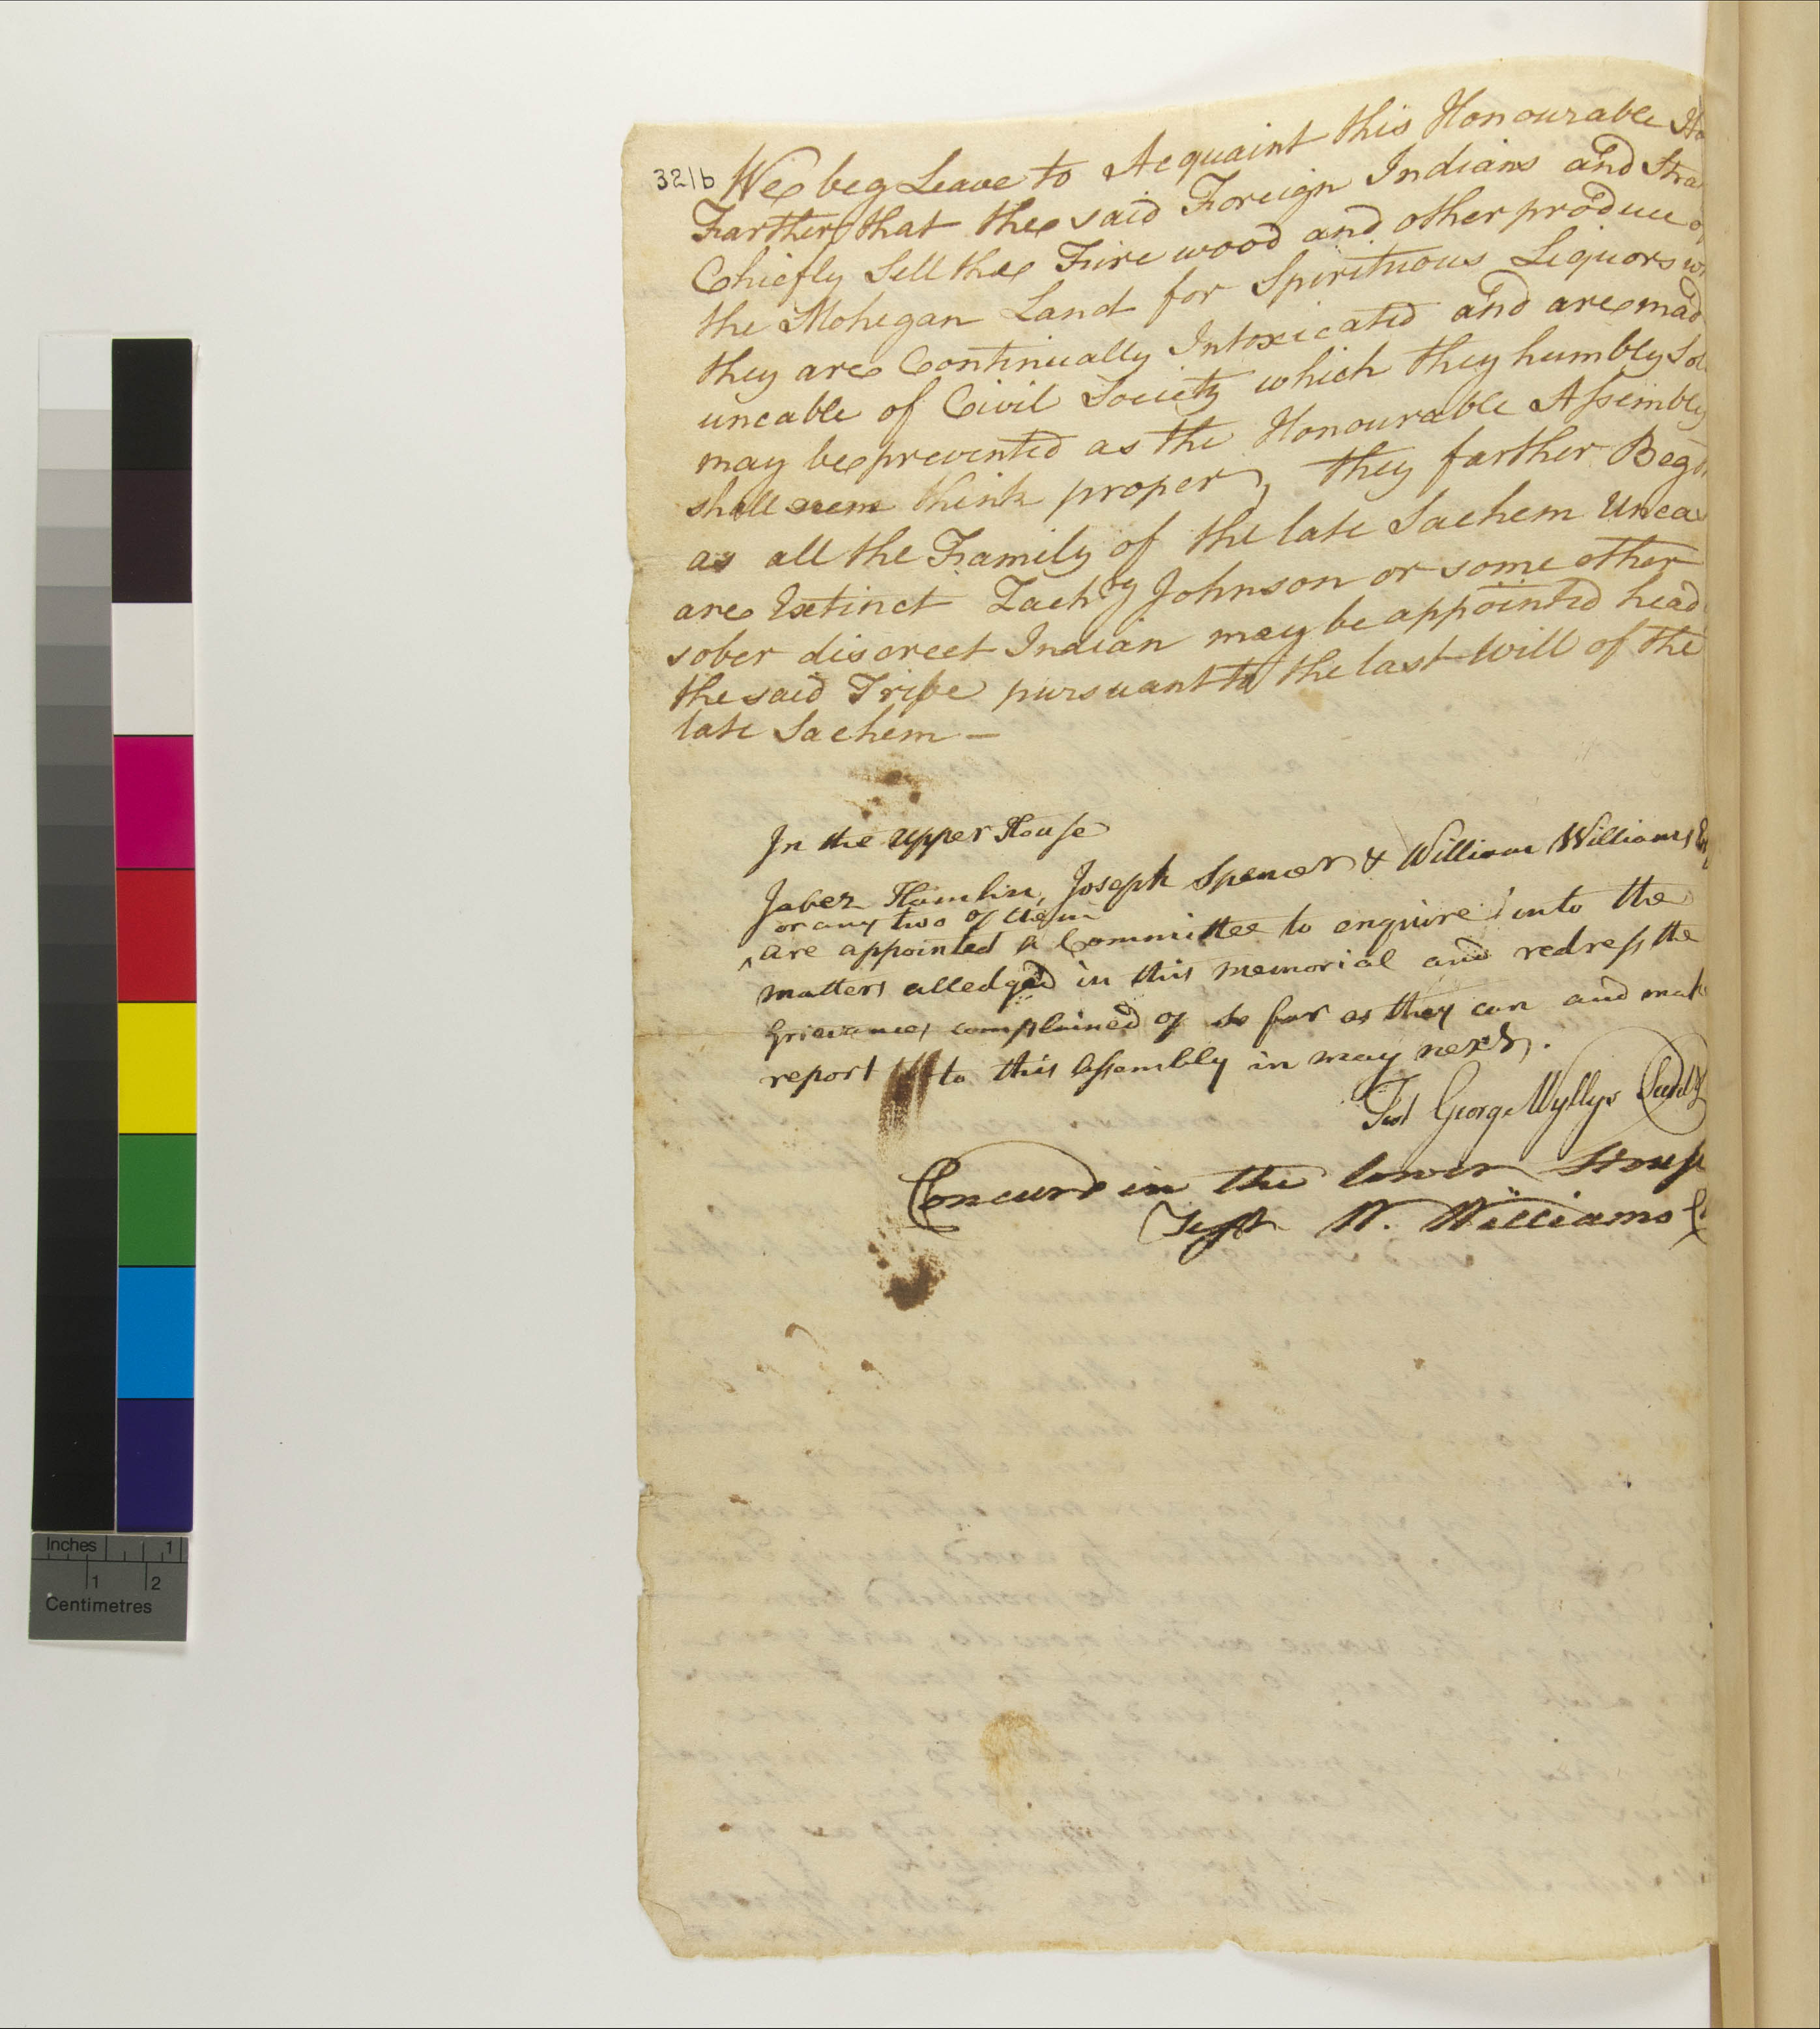 321b We beg Leave to Acquaint this Honourable
Farther that the said Foreign Indians and
Chiefly Sell the Fire wood and other produce
the Mohegan Land for Spirituous Liquors
they are Continually Intoxicated and are mad
uncable of Civil Society which they humbly
may be prevented as the Honourable Assembly
shall think proper, they farther Beg
as all the Family of the late Sachem Uncas
are Extinct Zachry Johnson or some other
sober discreet Indian may be appointed head
the said Tribe pursuant to the last Will of the
late Sachem —
In the upper House
Jabez Hamlin, Joseph Spencer & William Williams
or any two of them
^ are appointed a Committee to enquire into the
matters alledged in this memorial and redress the
Grievances complained of so far as they can and make
report to this Assembly in may next.
Test George Wyllys
Concurd in the lower House
Test W. Williams
Inches 1
1 2
Centimetres